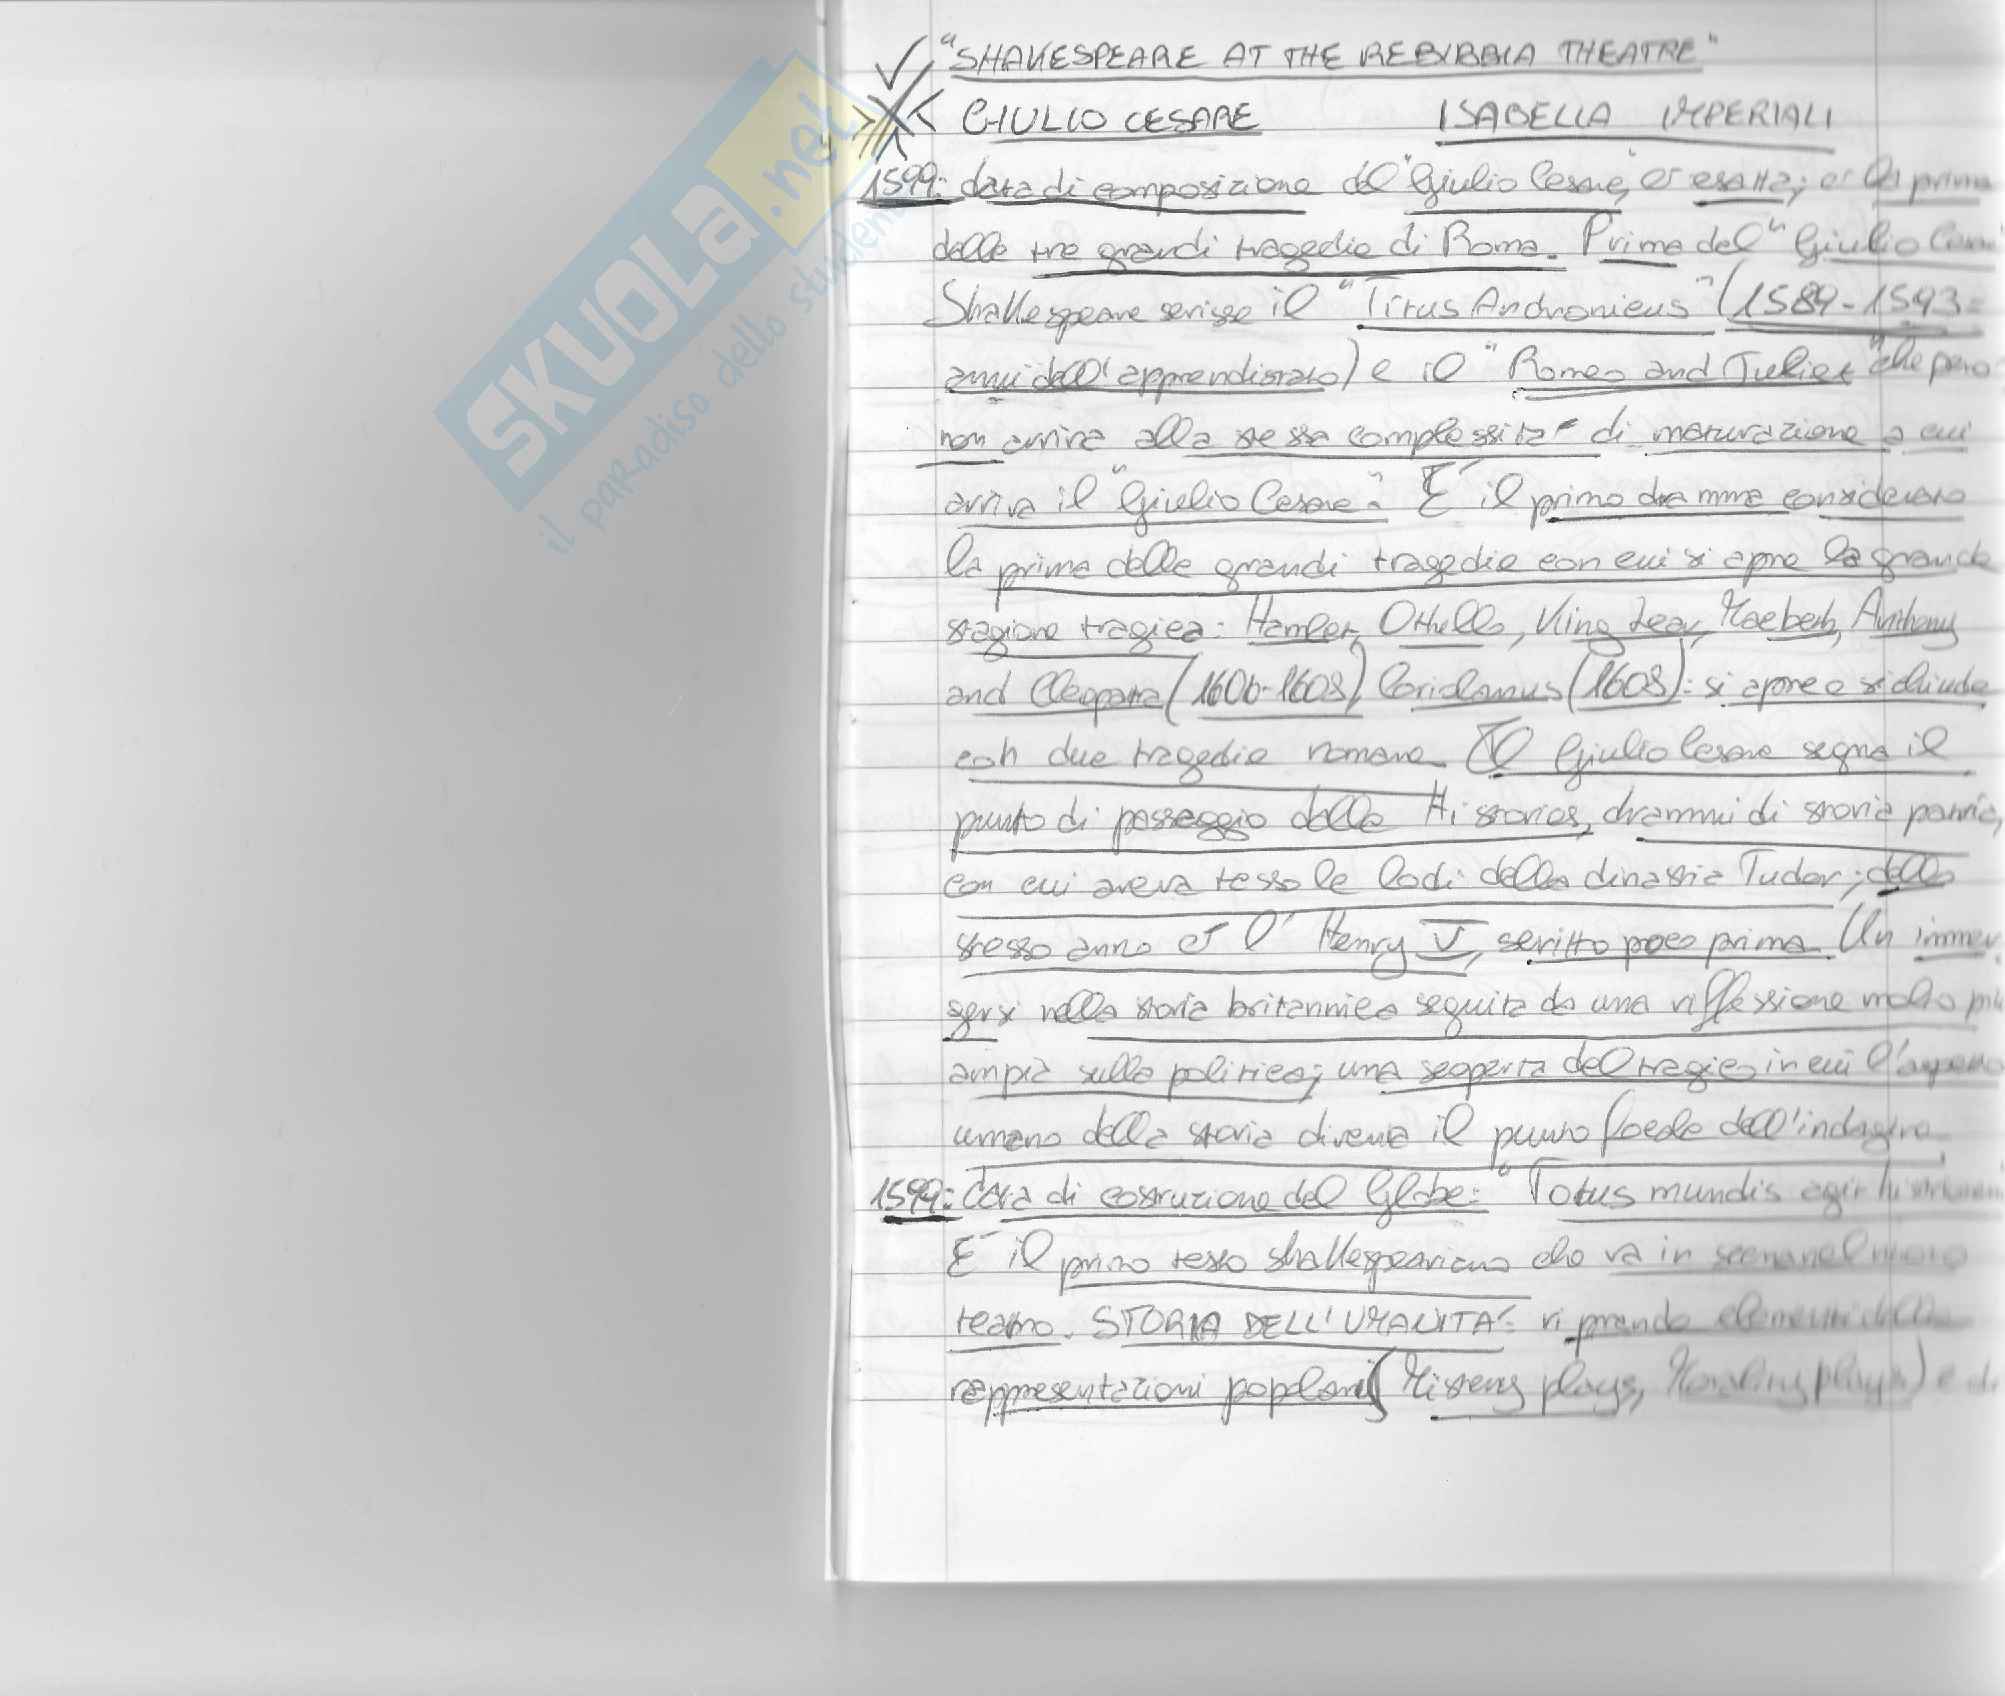 "SHAKESPEARE AT THE REBIBBIA THEATRE"
GIULIO CESARE ISABELLA IMPERIALI
1599: data di composizione del "Giulio Cesare", è esatta; è la prima
delle tre grandi tragedie di Roma. Prima del "Giulio Cesare"
Shakespeare scrisse il "Titus Andronicus" (1589-1593=
anni dell'apprendistato) e il "Romeo and Juliet" che però
non arriva alla stessa complessità di maturazione a cui
arriva il "Giulio Cesare". È il primo dramma considerato
la prima delle grandi tragedie con cui si apre la grande
stagione tragica: Hamlet, Othello, King Lear, Macbeth, Anthony
and Cleopatra (1606-1608), Coriolanus (1608): si apre e si chiude
con due tragedie romane. Il Giulio Cesare segna il
punto di passaggio dalle Histories, drammi di storia patria,
con cui aveva tesso le lodi della dinastia Tudor; dello
stesso anno è l'Henry V, scritto poco prima. Un immer
gersi nella storia britannica seguita da una riflessione molto più
ampia sulla politica; una scoperta del tragico in cui l'aspetto
umano della storia diventa il punto focale dell'indagine.
1599: data di costruzione del Globe: "Totus mundis agit
È il primo testo shakespeariano che va in scena nel nuovo
teatro. STORIA DELL'UMANITÀ: riprende elementi delle
rappresentazioni popolari (Mistery plays, Morality plays) e di
SKUOLA.net
il paradiso dello studente